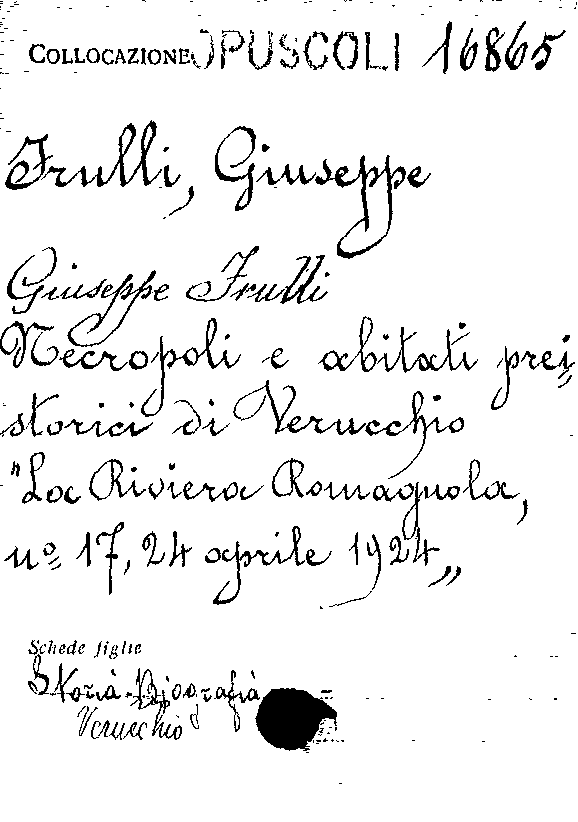 COLLOCAZIONE OPUSCOLI 16865
Frulli, Giuseppe
Giuseppe Frulli
Necropoli e abitati prei=
storici di Verucchio
"La Riviera Romagnola,
nº 17, 24 aprile 1924„
Schede figlie
Storia-Biografia
Verucchio